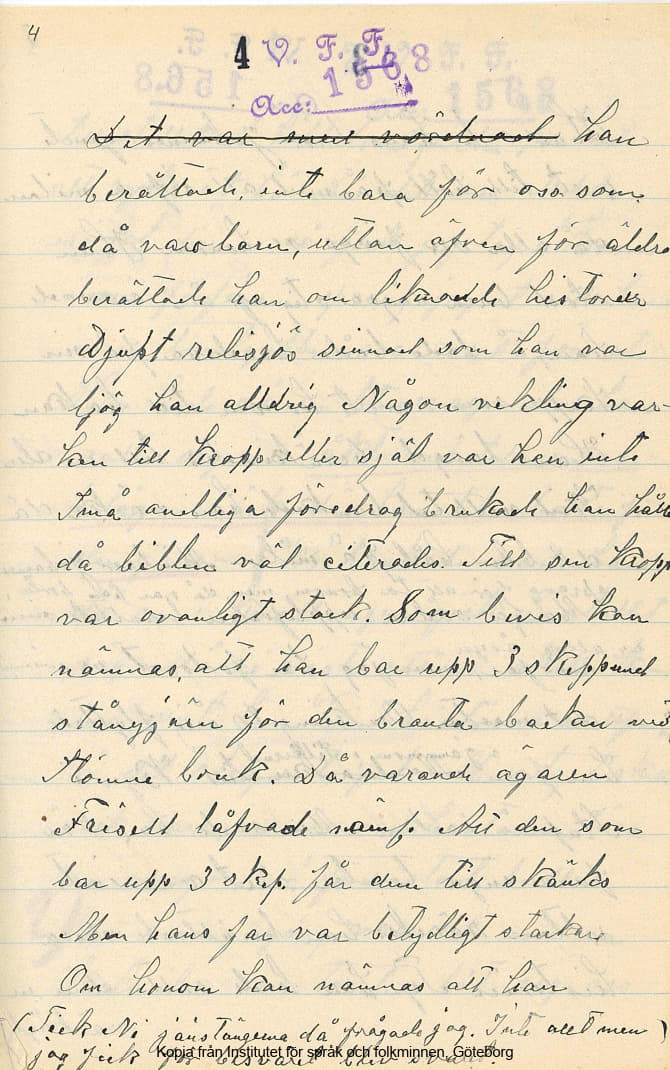 4
4 V. F. F.
1568
Acc:
Det var med vördnad han
berättade, inte bara för oss som
då varo barn, uttan äfven för äldre
berättade han om liknande historier
Djupt relisjös sinnad som han var
ljög han alldrig Någon vekling var-
ken till kropp eller själ var han inte
Små andliga föredrag brukade han hålla
då biblen väl citerades. Till sin kropp
var ovanligt stark. Som bevis kan
nämnas, att han bar upp 3 skeppund
stångjärn för den branta backan vid
bruk. Då varande ägaren
Frisell låfvade nämf. Att den som
bar upp 3 skep. får dem till skänks
Men hans far var betydligt starkare
Om honom kan nämnas att han
(Fick Ni järstängerna då frågade jag. Inte allt men)
jag fick för besväret blev svaret.
Kopia från Institutet för språk och folkminnen, Göteborg